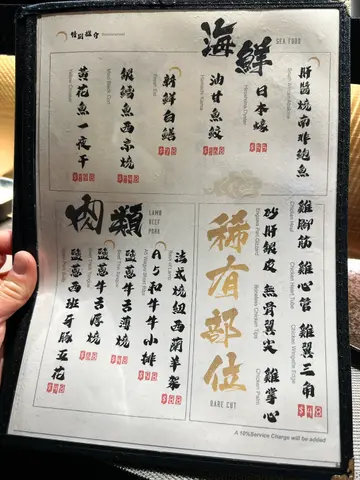 特別推介
海鮮
SEA FOOD
肝醬燒南非鮑魚
South African Abalone
日本蠔
Hiroshima Oyster
油甘魚鮫
Hamachi Kama
新鮮白鱔
銀鱈魚西京燒
黃花魚一夜干
Yellow Croaker
肉類
LAMB
BEEF
PORK
法式燒紐西蘭羊架
A5和牛牛小排
鹽蔥牛舌薄燒
鹽蔥牛舌厚燒
鹽蔥西班牙豚五花
稀有部位
RARE CUT
雞腳筋
Chicken Heel
雞心管
Chicken Heart Tube
雞翼三角
$40
砂肝銀皮
無骨翼尖
Boneless Chicken Tips
雞掌心
Chicken Palm
A 10% Service Charge will be added